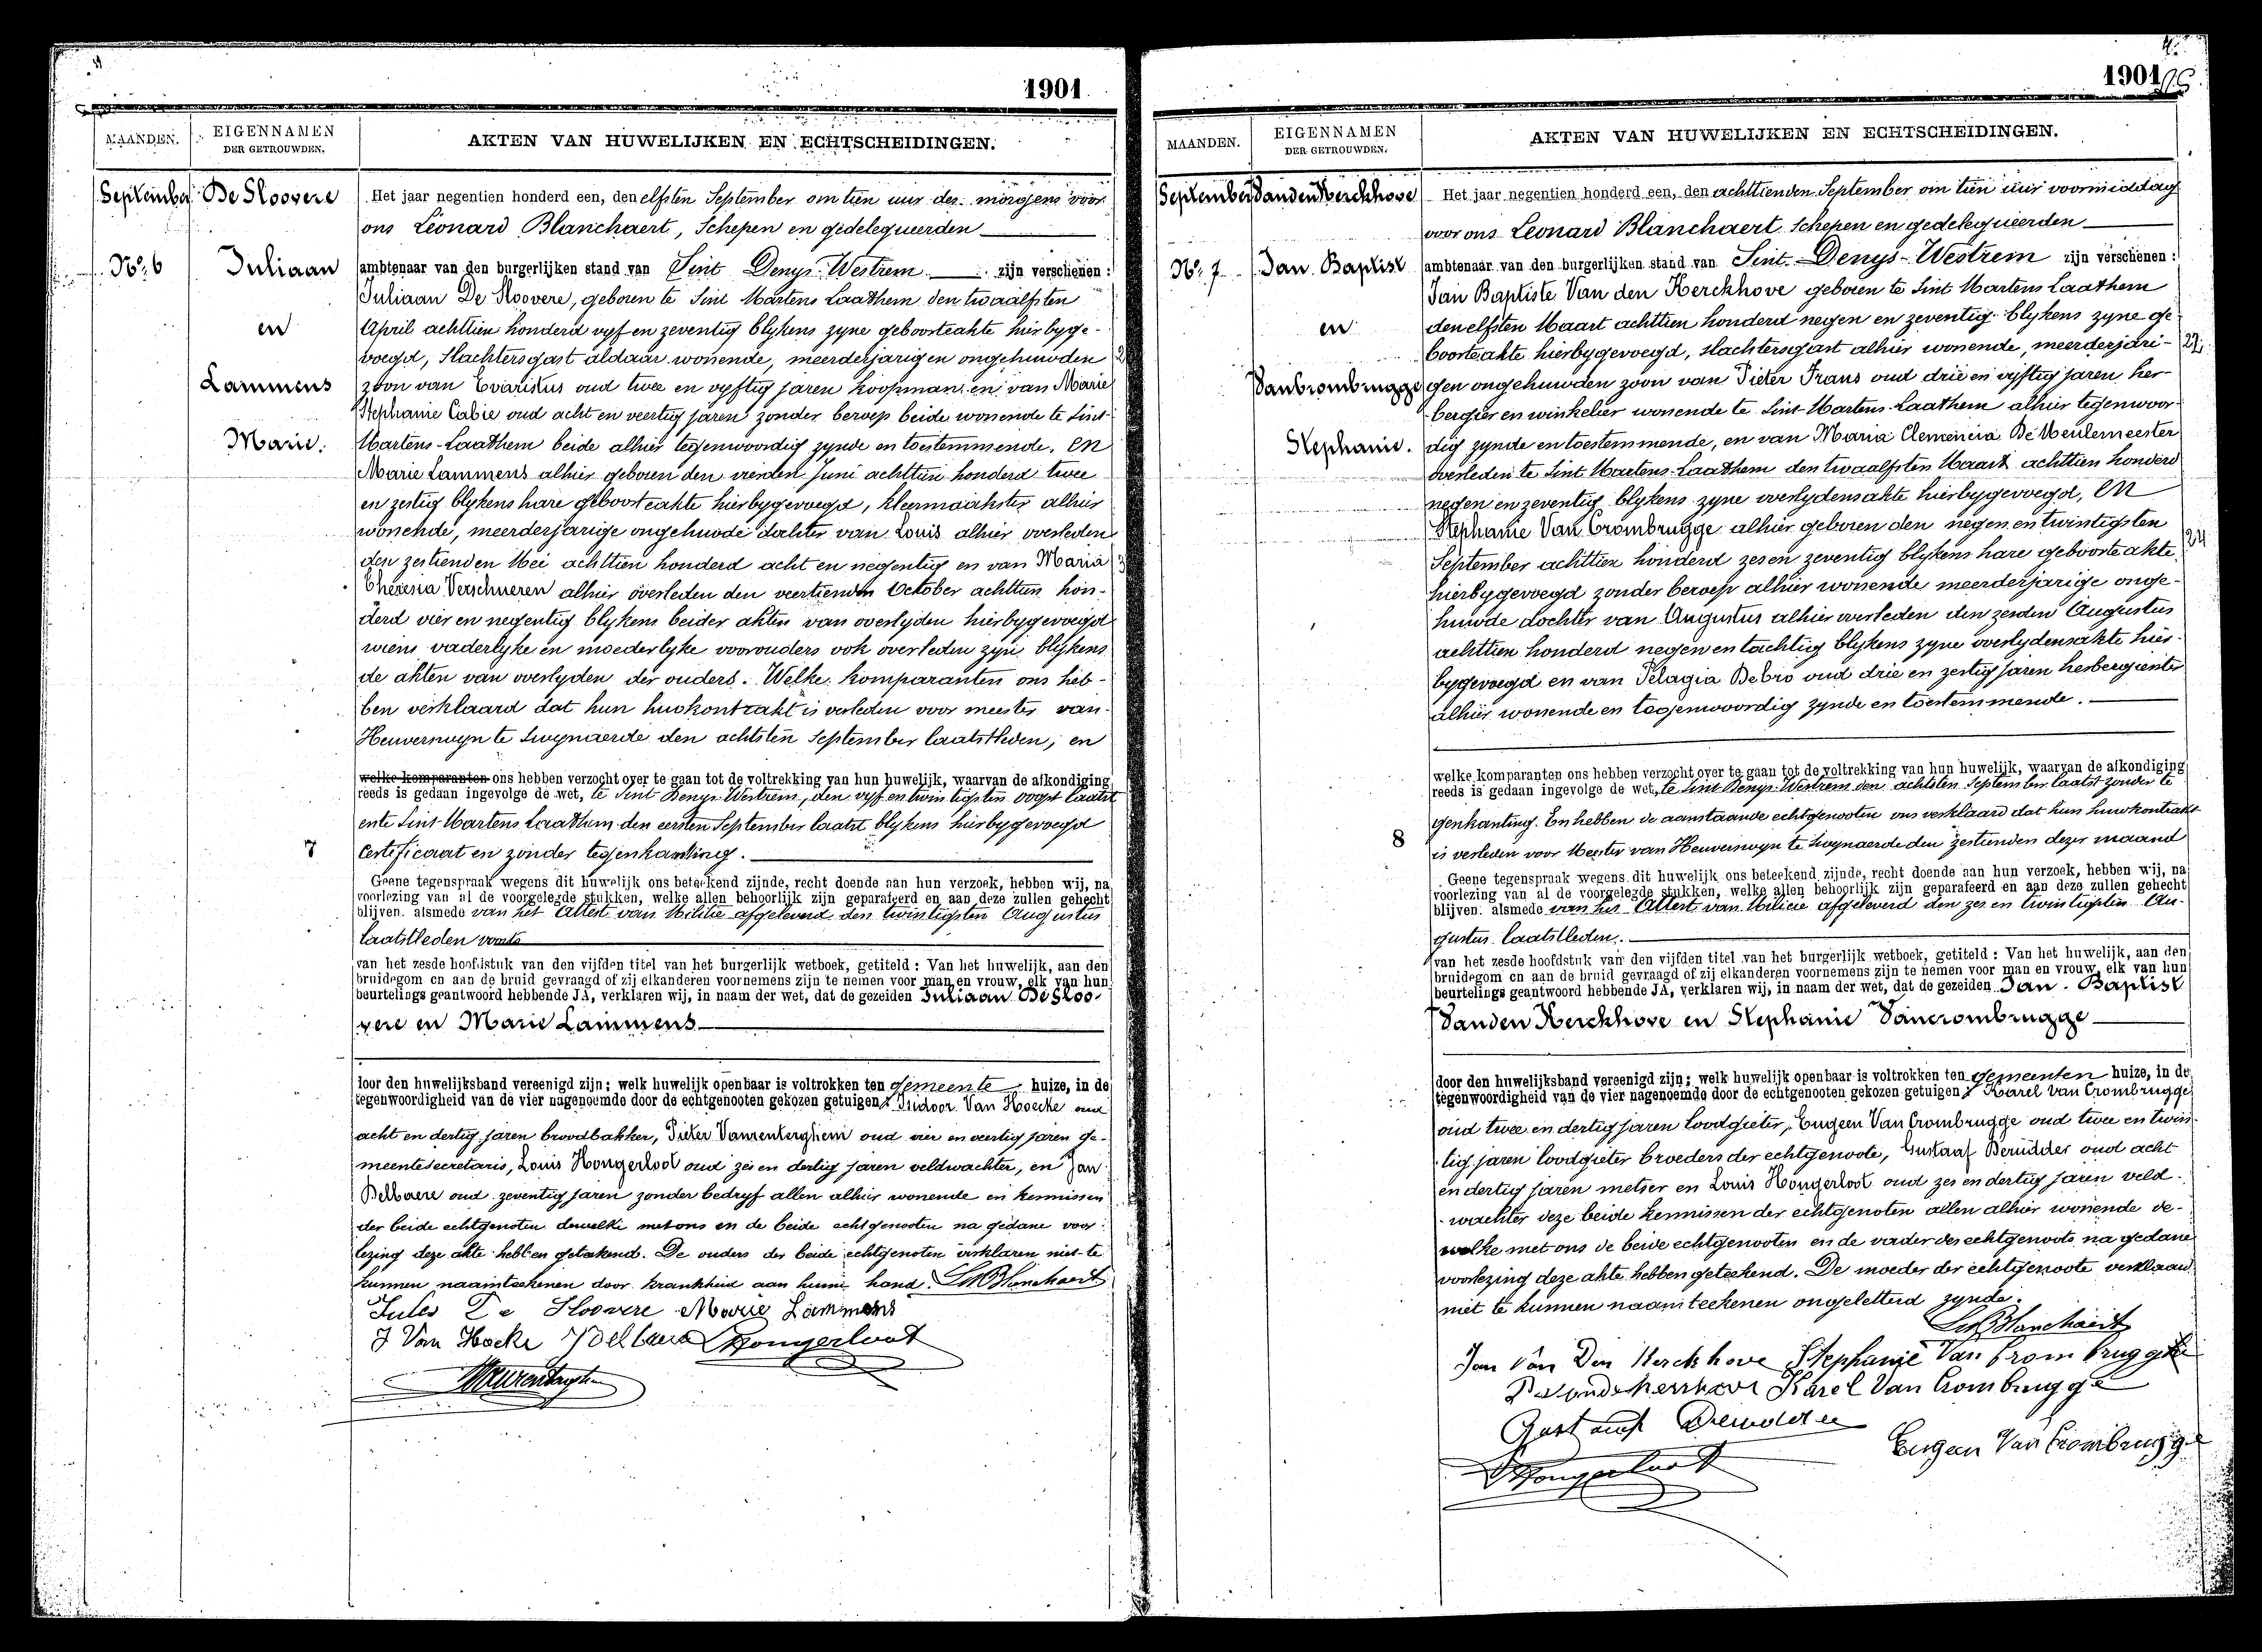 1901
MAANDEN.
EIGENNAMEN
DER GETROUWDEN.
AKTEN VAN HUWELIJKEN EN ECHTSCHEIDINGEN.
September
De Sloovere
Nº 6
Juliaan
en
Lammens
Marie.
Het jaar negentien honderd een, den elfsten September om tien uur des morgens voor
ons Léonard Blanchaert, Schepen en gedelegueerden
ambtenaar van den burgerlijken stand van Sint Denys Westrem zijn verschenen:
Juliaan De Sloovere, geboren te Sint Martens Laathem den twaalfsten
April achttien honderd vyf en zeventig blykens zyne geboorteakte hierbyge-
voegd, slachtersgast aldaar wonende, meerderjarigen ongehuwden
zoon van Evaristus oud twee en vyftig jaren koopman en van Marie
Stephanie Cabie oud acht en veertig jaren zonder beroep beide wonende te Sint
Martens-Laathem beide alhier tegenwoordig zynde en toestemmende. en
Marie Lammens alhier geboren den vierden Juni achttien honderd twee
en zestig blykens hare geboorteakte hierbygevoegd, kleermaakster alhier
wonende, meerderjarige ongehuwde dochter van Louis alhier overleden
den zestienden Mei achttien honderd acht en negentig en van Maria
Theresia Verschueren alhier overleden den veertienden October achttien hon-
derd vier en negentig blykens beider akten van overlyden hierbygevoegd
wiens vaderlyke en moederlyke voorouders ook overleden zyn blykens
de akten van overlyden der ouders. Welke komparanten ons heb-
ben verklaard dat hun huwkontrakt is verleden voor meester van
Heuverswyn te Swynaerde den achtsten September laatstleden, en
welke komparanten ons hebben verzocht over te gaan tot de voltrekking van hun huwelijk, waarvan de afkondiging
reeds is gedaan ingevolge de wet, te Sint Denys Westrem, den vyf en twintigsten oogst laatst
ente Sint Martens Laathem den eersten September laatst blykens hierbygevoegd
7
Certificaat en zonder tegenkanting.
Geene tegenspraak wegens dit huwelijk ons beteekend zijnde, recht doende aan hun verzoek, hebben wij, na
voorlezing van al de voorgelegde stukken, welke allen behoorlijk zijn geparafeerd en aan deze zullen gehecht
blijven. alsmede van het Attest van Militie afgeleverd den twintigsten Augustus
laatstleden
van het zesde hoofdstuk van den vijfden titel van het burgerlijk wetboek, getiteld: Van het huwelijk, aan den
bruidegom en aan de bruid gevraagd of zij elkanderen voornemens zijn te nemen voor man en vrouw, elk van hun
beurtelings geantwoord hebbende JA, verklaren wij, in naam der wet, dat de gezeiden Juliaan De Sloo-
vere en Marie Lammens
door den huwelijksband vereenigd zijn; welk huwelijk openbaar is voltrokken ten gemeente huize, in de
tegenwoordigheid van de vier nagenoemde door de echtgenooten gekozen getuigen Isidoor Van Hoecke oud
acht en dertig jaren broodbakker, Pieter Vanrenterghem oud vier en veertig jaren ge-
meentesecretaris, Louis Hongerloot oud zes en dertig jaren veldwachter, en Jan
Delbaere oud zeventig jaren zonder bedryf allen alhier wonende en kennissen
der beide echtgenoten dewelke met ons en de beide echtgenooten na gedane voor-
lezing deze akte hebben geteekend. De ouders der beide echtgenoten verklaren niet te
kunnen naamteekenen door krankheid aan hunne hand. Blanchaert
Jules De Sloovere Marie Lammens
J Van Hocke Delbaere Hongerloot
1901
MAANDEN.
EIGENNAMEN
DER GETROUWDEN.
AKTEN VAN HUWELIJKEN EN ECHTSCHEIDINGEN.
September
Vanden Kerckhove
Nº 7
Jan Baptist
en
Van Crombrugge
Stephanie.
Het jaar negentien honderd een, den achttienden September om tien uur voormiddag
voor ons Leonard Blanchaert Schepen en gedelegueerden
ambtenaar van den burgerlijken stand van Sint-Denys-Westrem zijn verschenen:
Jan Baptiste Van den Kerckhove geboren te Sint Martens Laathem
den elfsten Maart achttien honderd negen en zeventig blykens zyne ge-
boorteakte hierbygevoegd, slachtersgast alhier wonende, meerderjari-
gen ongehuwden zoon van Pieter Frans oud drie en vyftig jaren her-
bergier en winkelier wonende te Sint-Martens-Laathem alhier tegenwoor-
dig zynde en toestemmende, en van Maria Clemencia De Meulemeester
overleden te Sint Martens-Laathem den twaalfsten Maart achttien honderd
negen en zeventig blykens zyne overlydensakte hierbygevoegd, en
Stephanie Van Crombrugge alhier geboren den negen en twintigsten
September achttien honderd zes en zeventig blykens hare geboorteakte
hierbygevoegd zonder beroep alhier wonende meerderjarige onge-
huwde dochter van Augustus alhier overleden den zesden Augustus
achttien honderd negen en tachtig blykens zyne overlydensakte hier-
bygevoegd en van Pelagia Debro oud drie en zestig jaren herbergierster
alhier wonende en tegenwoordig zynde en toestemmende.
welke komparanten ons hebben verzocht over te gaan tot de voltrekking van hun huwelijk, waarvan de afkondiging
reeds is gedaan ingevolge de wet, te Sint Denys-Westrem den achtsten September laatst zonder te
genkanting. En hebben de aanstaande echtgenooten ons verklaard dat hun huwkontrakt
8
is verleden voor Meester van Heuverswyn te Swynaerde den zestienden dezer maand
Geene tegenspraak wegens dit huwelijk ons beteekend zijnde, recht doende aan hun verzoek, hebben wij, na
voorlezing van al de voorgelegde stukken, welke allen behoorlijk zijn geparafeerd en aan deze zullen gehecht
blijven. alsmede van het Attest van Milicie afgeleverd den zes en twintigsten Au-
gustus laatstleden.
van het zesde hoofdstuk van den vijfden titel van het burgerlijk wetboek, getiteld: Van het huwelijk, aan den
bruidegom en aan de bruid gevraagd of zij elkanderen voornemens zijn te nemen voor man en vrouw, elk van hun
beurtelings geantwoord hebbende JA, verklaren wij, in naam der wet, dat de gezeiden Jan-Baptist
Vanden Kerckhove en Stephanie Vancrombrugge
door den huwelijksband vereenigd zijn; welk huwelijk openbaar is voltrokken ten gemeenten huize, in de
tegenwoordigheid van de vier nagenoemde door de echtgenooten gekozen getuigen Karel Van Crombrugge
oud twee en dertig jaren loodgieter, Eugeen Van Crombrugge oud twee en twin-
tig jaren loodgieter broeders der echtgenoote, Gustaaf Derudder oud acht
en dertig jaren metser en Louis Hongerloot oud zes en dertig jaren veld-
wachter deze beide kennissen der echtgenoten allen alhier wonende de-
welke met ons de beide echtgenooten en de vader des echtgenoots na gedane
voorlezing deze akte hebben geteekend. De moeder der echtgenoote verklaard
niet te kunnen naamteekenen ongeletterd zynde.
Blanchaert
Jan Van Den Kerckhove Stephanie Van Crombrugghe
Karel Van Crombrugge
Gustaaf
Eugeen Van Crombrugge
Hongerloot